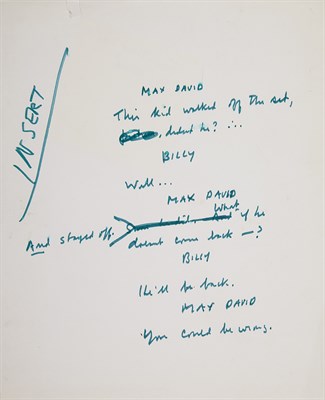 INSERT
MAX DAVID
This kid walked off the set,
, didnt he? ...
BILLY
Well...
MAX DAVID
What
And stayed off. if he
doesnt come back —?
BILLY
He'll be back.
MAX DAVID
You could be wrong.